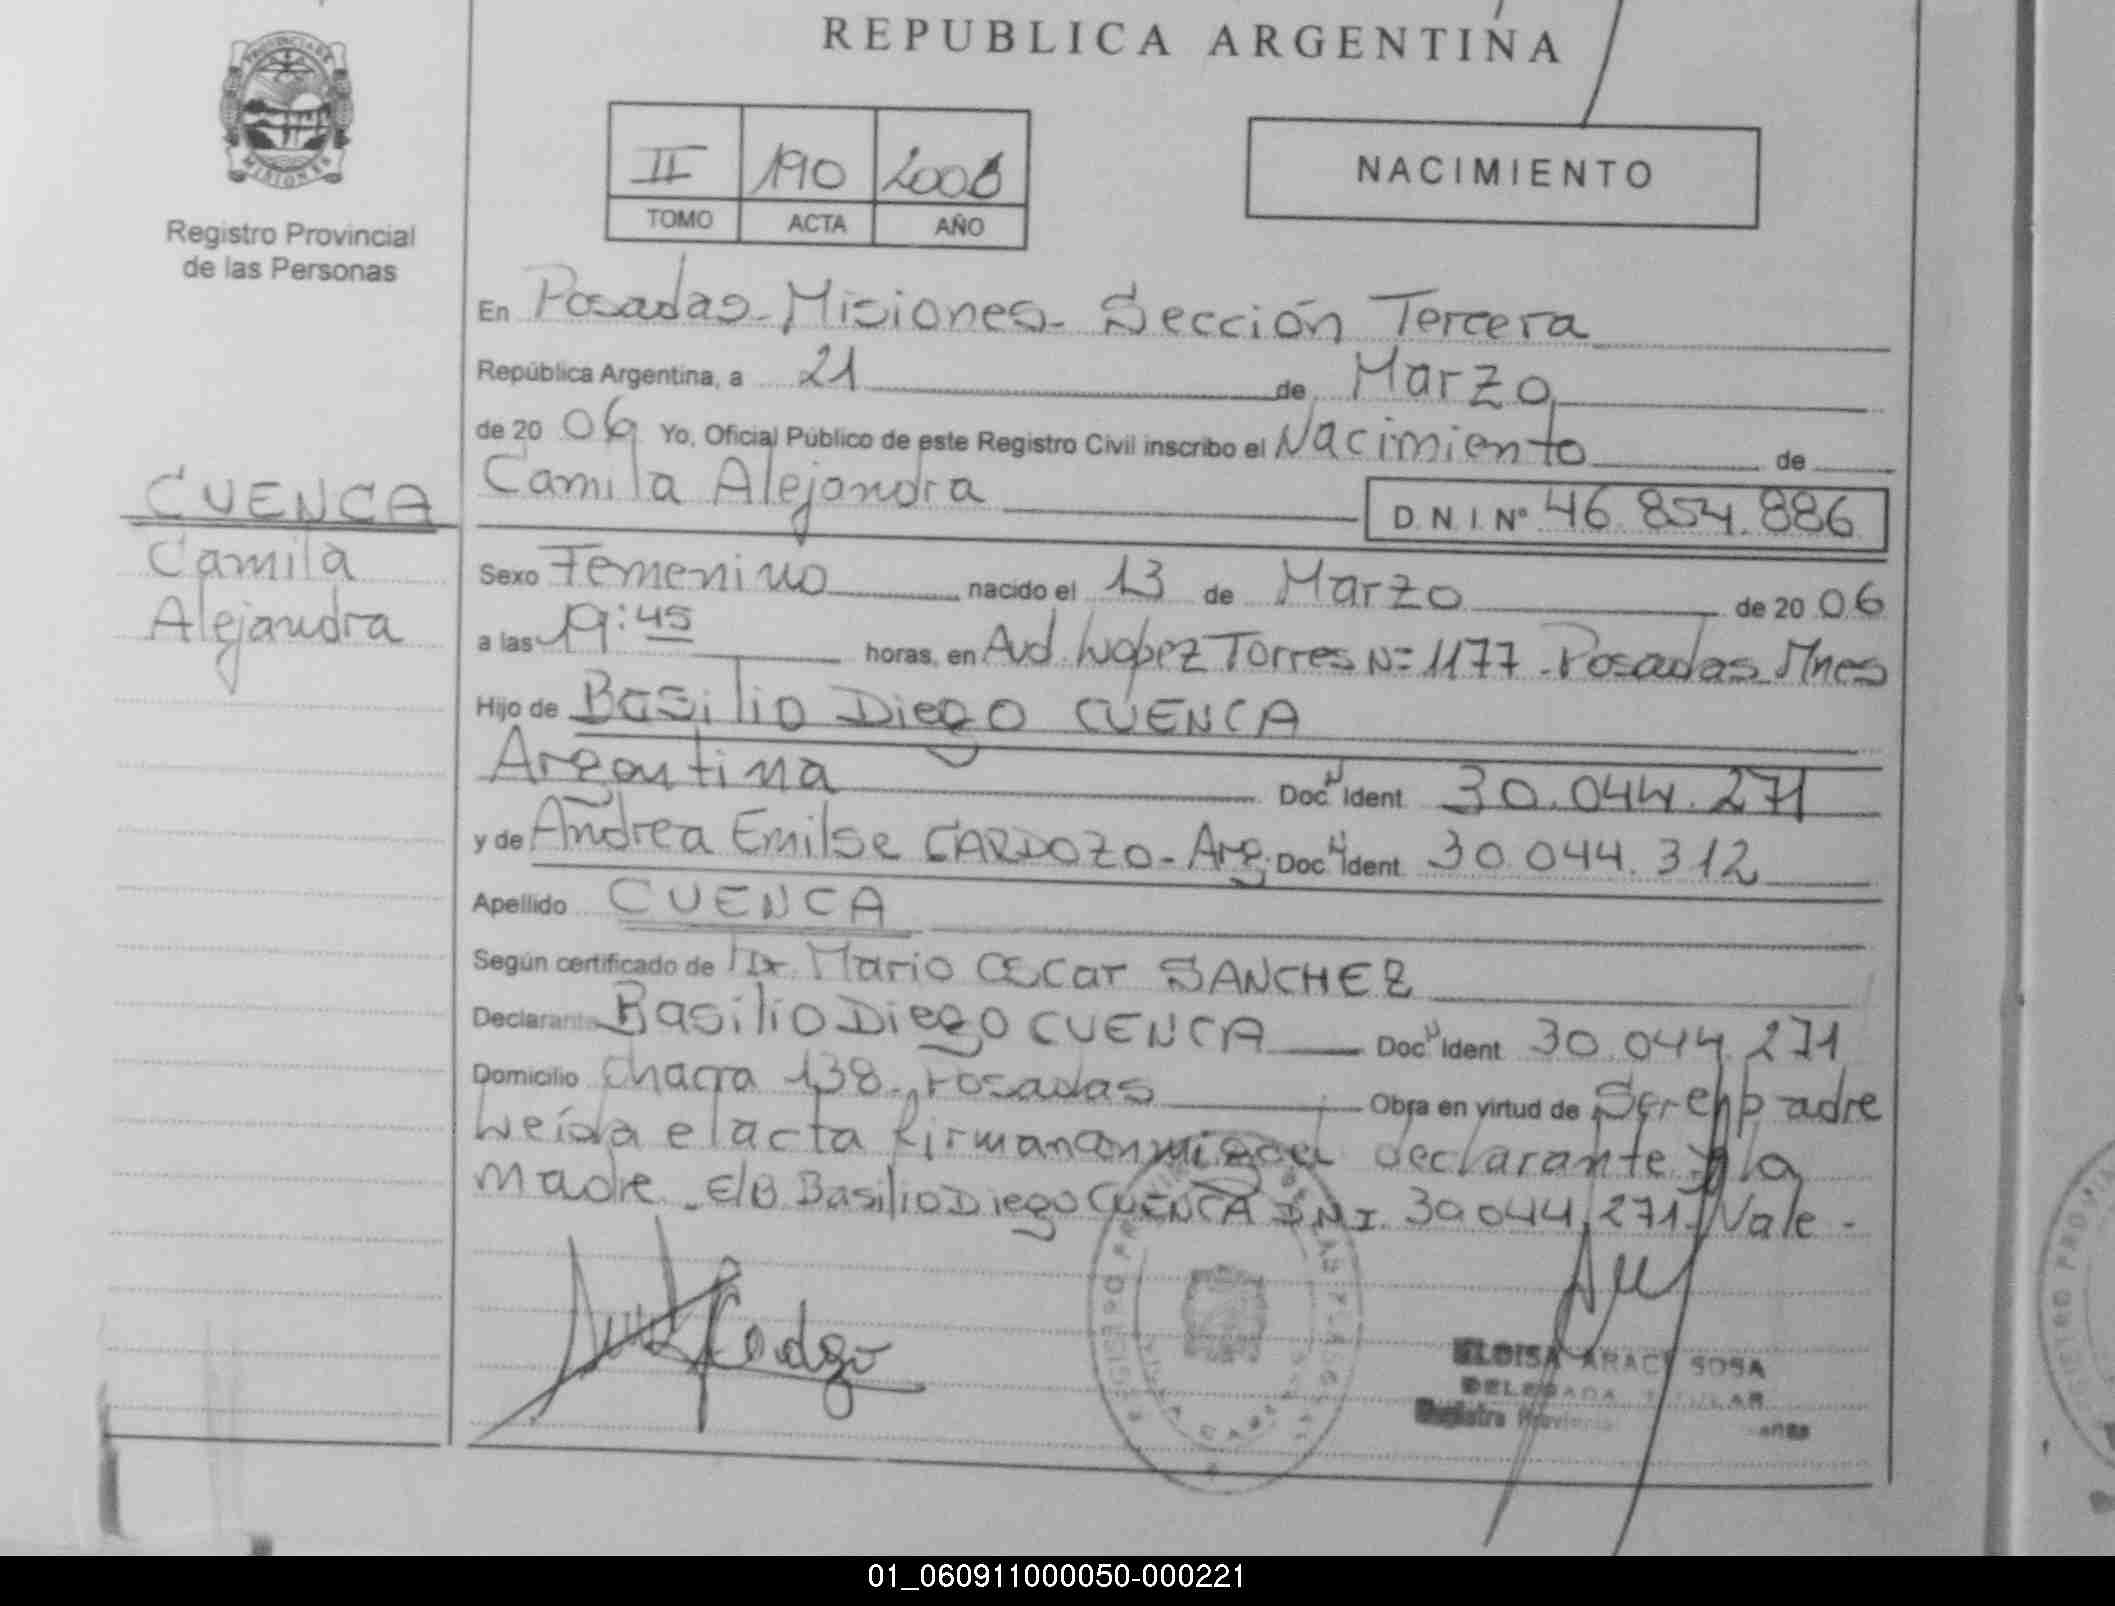 REPUBLICA ARGENTINA
PROVINCIA DE
MISIONES
Registro Provincial
de las Personas
II 190 2006
TOMO ACTA AÑO
NACIMIENTO
En Posadas - Misiones - Sección Tercera
República Argentina, a 21 de Marzo
de 20 06 Yo, Oficial Público de este Registro Civil inscribo el Nacimiento de
CUENCA
Camila
Alejandra
Camila Alejandra D.N.I. Nº 46.854.886
Sexo Femenino nacido el 13 de Marzo de 20 06
a las 19:45 horas, en Avd. López Torres Nº 1177 - Posadas Mnes
Hijo de Basilio Diego CUENCA
Argentina Doc. Ident. 30.044.271
y de Andrea Emilse CARDOZO - Arg. Doc. Ident. 30.044.312
Apellido CUENCA
Según certificado de Dr. Mario Oscar SANCHEZ
Declarante Basilio Diego CUENCA Doc. Ident. 30.044.271
Domicilio Chacra 138 - Posadas Obra en virtud de Ser el padre
Leída el acta firman conmigo el declarante y la
Madre - E/B Basilio Diego CUENCA D.N.I. 30.044.271. Vale -
SOSA
DELEGADA TITULAR
Registro Provincial
01_060911000050-000221